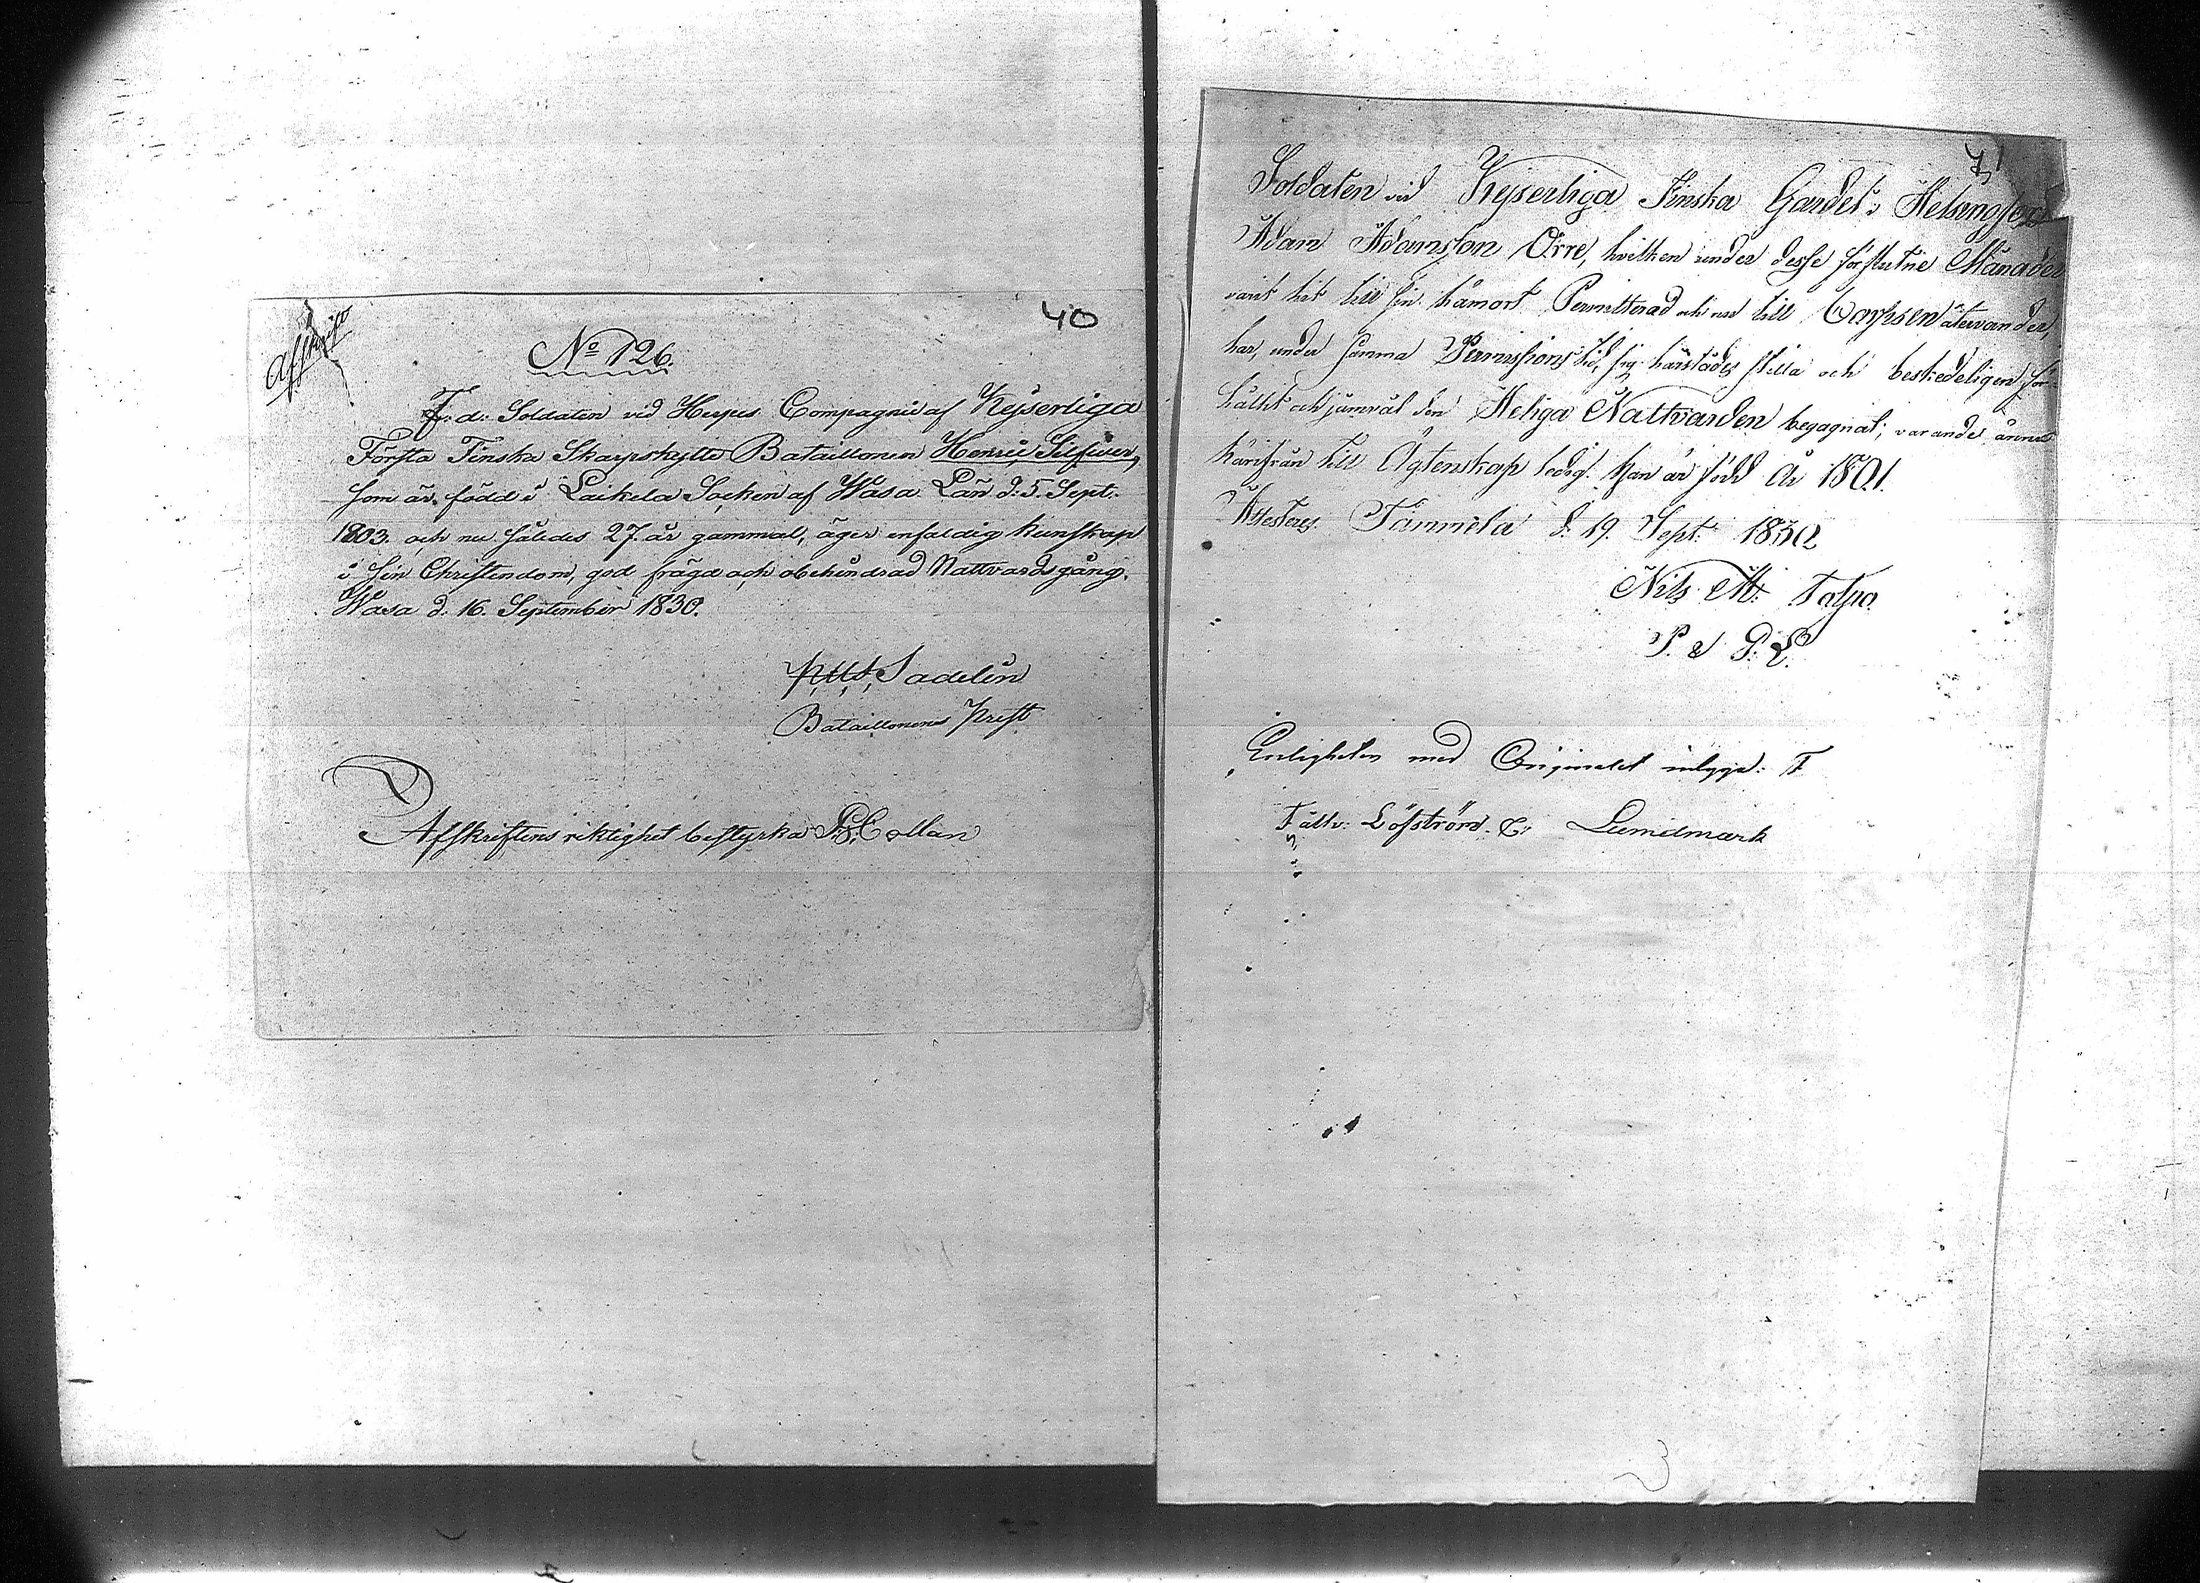 40
Afskrift
No 126.
F. d. Soldaten vid Hupes Compagnie af Kejserliga
Första Finska Skarpskytte Bataillonen Henric Silfver,
som är född i Laihela Socken af Wasa Län d. 5. Sept.
1803. och nu således 27. år gammal, äger enfaldig kunskap
i sin Christendom, god frägd och obehindrad Nattvardsgång.
Wasa d. 16. September 1830.
Sadelin
Bataillonens Prest
Afskriftens riktighet bestyrka Collan
41
Soldaten vid Kejserliga Finska Gardet i Helsingfors
Adam Adamsson Orre, hvilken under desse förflutne Månader
varit hit till sin hämort Permitterad och nu till Corpsen återvander,
har, under samma Permissions tid, sig härstädes stilla och beskedeligen för-
hållit och jämväl den Heliga Nattvarden begagnat; varande ännu
härifrån till Ägtenskap ledig. Han är född År 1801.
Attesteras. Tammela d. 19. Sept. 1830
Nils M. Tolpo.
P. & P. L.
Enligheten med Originalet intyga: F
Fältv: Löfström. C: Lundmark